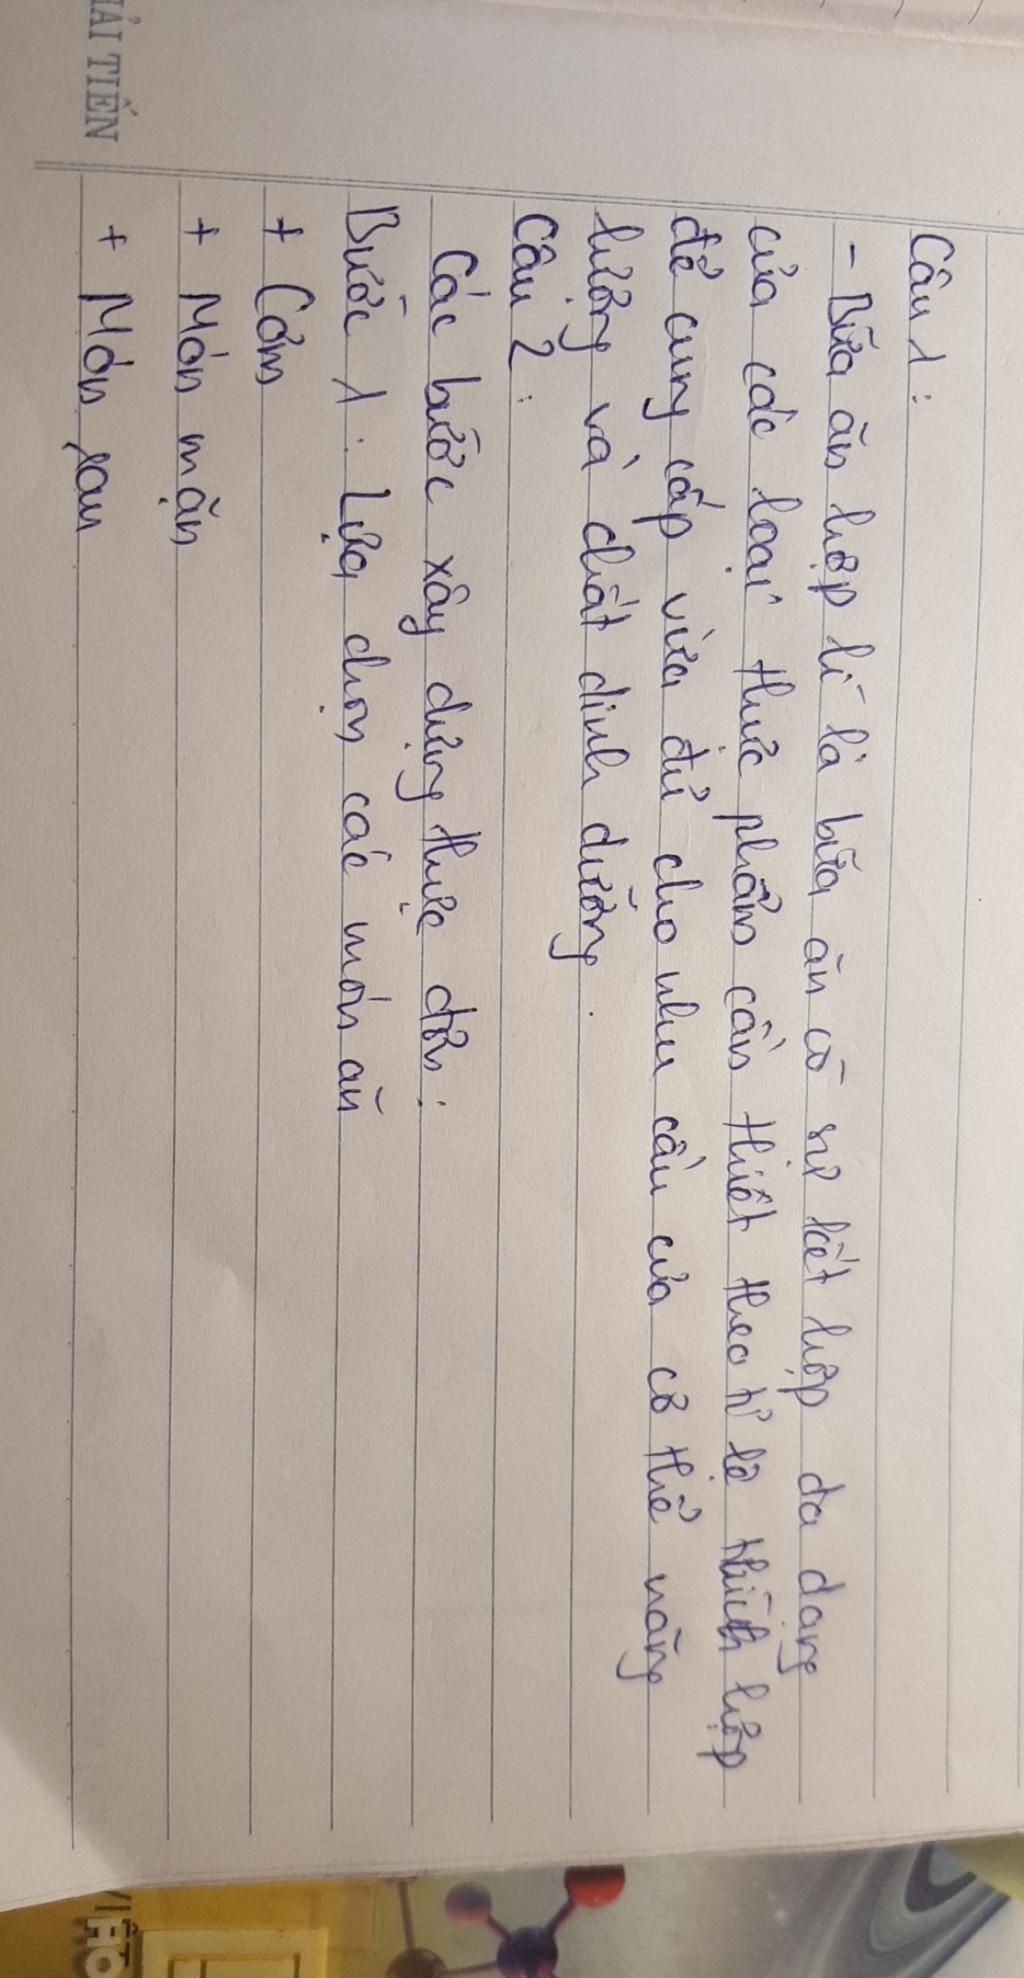 Câu 1:
- Bữa ăn hợp lí là bữa ăn có sự kết hợp đa dạng
của các loại thực phẩm cần thiết theo tỉ lệ thích hợp
để cung cấp vừa đủ cho nhu cầu của cơ thể năng
lượng và chất dinh dưỡng.
Câu 2:
Các bước xây dựng thực đơn:
Bước 1: Lựa chọn các món ăn
+ Cơm
+ Món mặn
+ Món rau
HẢI TIẾN